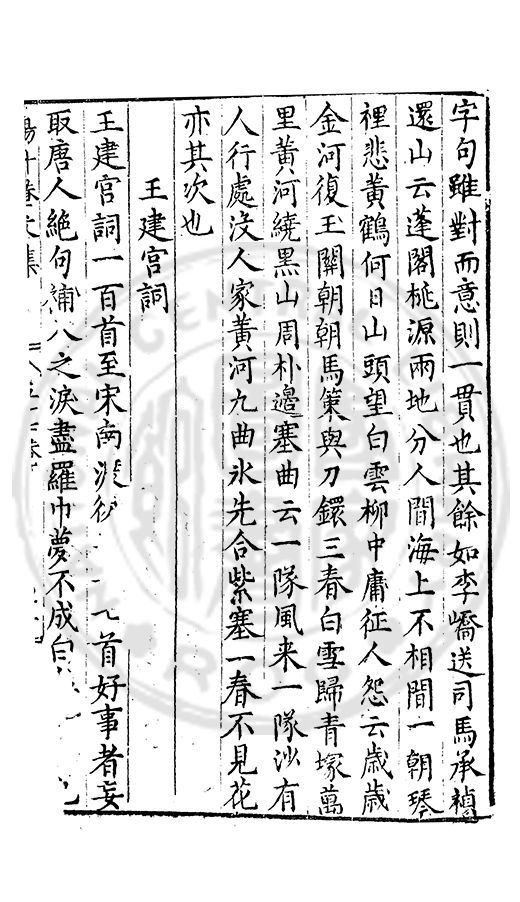 字句雖對而意則一貫也其餘如李嶠送司馬承禎
還山云蓬閣桃源兩地分人間海上不相聞一朝琴
裡悲黃鶴何日山頭望白雲柳中庸征人怨云歲歲
金河復玉關朝朝馬策與刀鐶三春白雪歸青塚萬
里黃河繞黑山周朴邊塞曲云一隊風来一隊沙有
人行處没人家黃河九曲氷先合紫塞一春不見花
亦其次也
王建宮詞
王建宮詞一百首至宋南渡後 首好事者妄
取唐人絶句補入之淚盡羅巾夢不成白
升菴文集